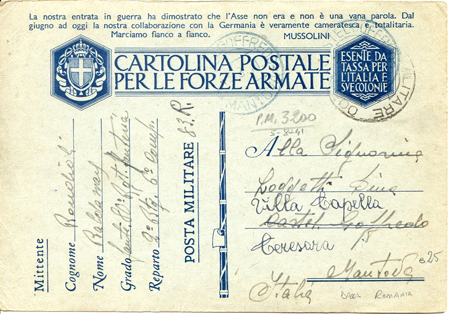 La nostra entrata in guerra ha dimostrato che l'Asse non era e non è una vana parola. Dal
giugno ad oggi la nostra collaborazione con la Germania è veramente cameratesca e totalitaria.
Marciamo fianco a fianco. MUSSOLINI
CARTOLINA POSTALE
PER LE FORZE ARMATE
ESENTE DA
TASSA PER
L'ITALIA E
SVE COLONIE
MILITARE
MANTOVA
P.M. 3200
Mittente
Cognome
Nome
Grado
Reparto
POSTA MILITARE 83. R.
Alla Signorina
Villa Capella
Castel Goffredo
Ceresara
Mantova
Italia
DALLA ROMANIA